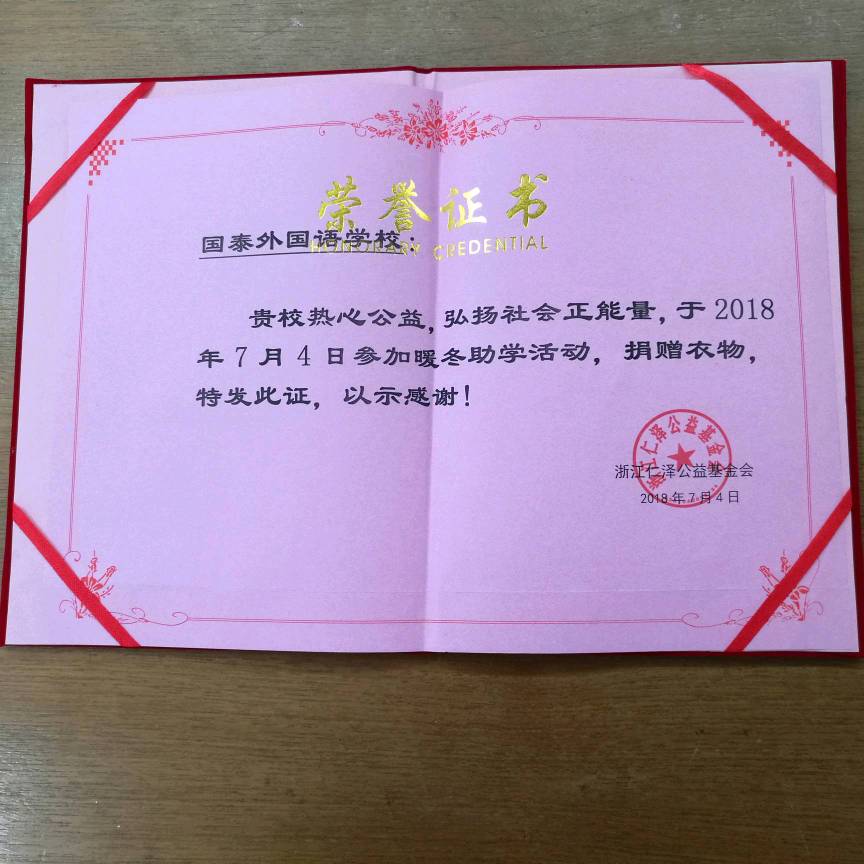 荣誉证书
HONORARY CREDENTIAL
国泰外国语学校：
贵校热心公益，弘扬社会正能量，于2018
年7月4日参加暖冬助学活动，捐赠衣物，
特发此证，以示感谢！
浙江仁泽公益基金会
浙江仁泽公益基金会
2018年7月4日